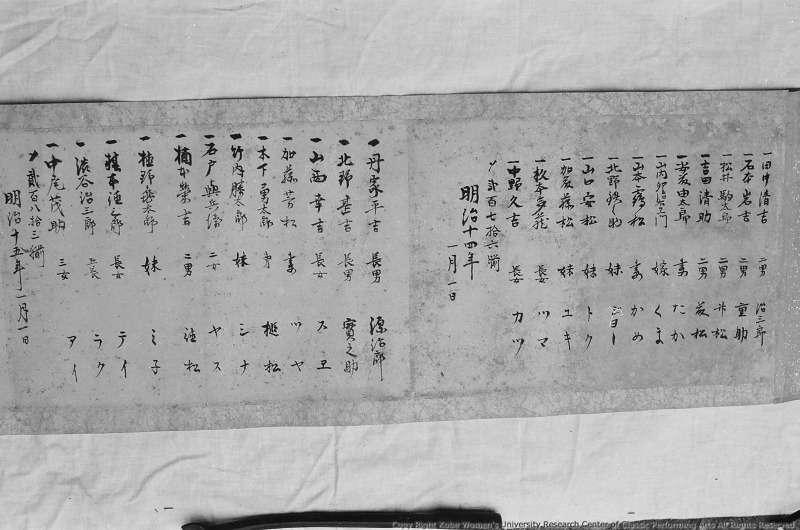 一田中清吉 二男 治三郎
一石本岩吉 二男 重助
一松井駒太郎 二男 松
一吉田清助 二男 菱松
一安藤由太郎 妻 たか
一山内 門 嫁 くま
一山本 松 妻 かめ
一北野 妹
一山口安松 妹 トク
一加藤藤松 妹 ユキ
一松本 蔵 長女 ツマ
一中野久吉 長女 カツ
〆貳百七拾六搦
明治十四年
一月一日
一丹家平吉 長男 源治郎
一北野甚吉 長男 實之助
一山西幸吉 長女 スヱ
一加藤芳松 妻 ツヤ
一木下勇太郎 松
一竹内勝太郎 妹 シナ
一石戸與兵衛 二女 ヤス
一楠本榮吉 二男 松
一植野 太郎 妹 ミ子
一 本 郎 長女 テイ
一澁谷治三郎 長女 ラク
一中尾茂助 三女 アイ
〆貳百八拾三搦
明治十五年一月一日
Copy Right Kobe Women's University Research Center of Classic Performing Arts All Rights Reserved